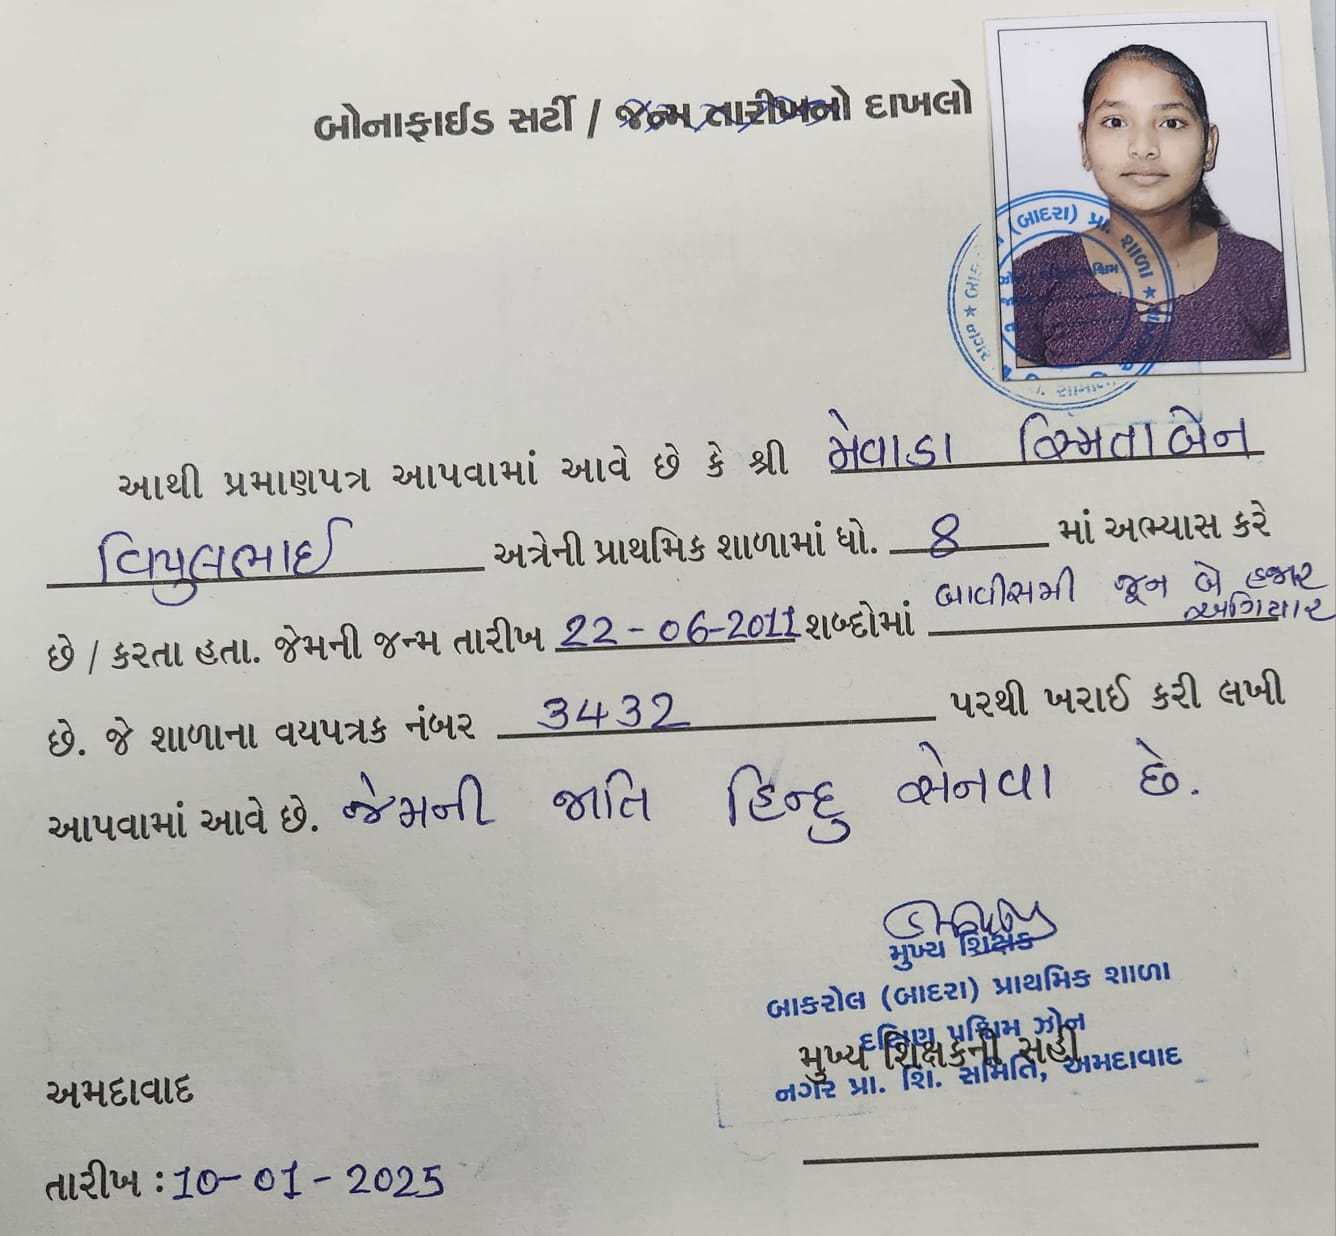 બોનાફાઈડ સર્ટી / જન્મ તારીખનો દાખલો
(બાદરા) પ્રા. શાળા
આથી પ્રમાણપત્ર આપવામાં આવે છે કે શ્રી મેવાડા સ્મિતાબેન
વિપુલભાઈ અત્રેની પ્રાથમિક શાળામાં ધો. 8 માં અભ્યાસ કરે
છે / કરતા હતા. જેમની જન્મ તારીખ 22-06-2011 શબ્દોમાં બાવીસમી જૂન બે હજાર
અગિયાર
છે. જે શાળાના વયપત્રક નંબર 3432 પરથી ખરાઈ કરી લખી
આપવામાં આવે છે. જેમની જાતિ હિન્દુ સેનવા છે.
મુખ્ય શિક્ષક
બાકરોલ (બાદરા) પ્રાથમિક શાળા
દક્ષિણ પશ્ચિમ ઝોન
મુખ્ય શિક્ષકની સહી
નગર પ્રા. શિ. સમિતિ, અમદાવાદ
અમદાવાદ
તારીખ : 10-01-2025